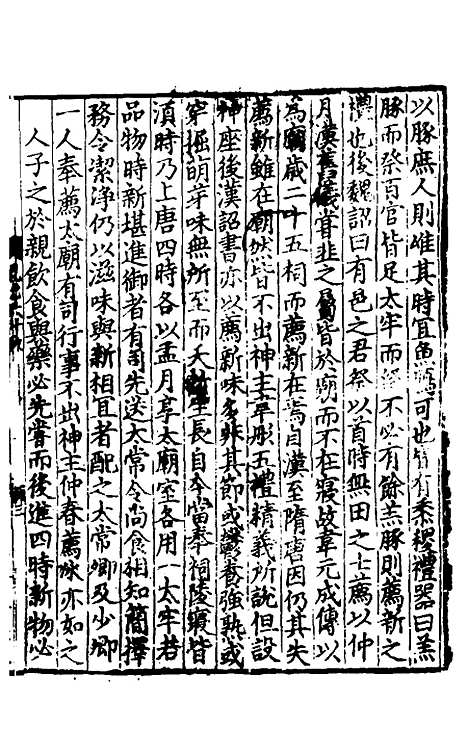 以豚庶人則唯其時宜魚鴈可也皆有黍稷禮器曰羔
豚而祭百官皆足太牢而祭不必有餘羔豚則薦新之
禮也後魏詔曰有邑之君祭以首時無田之士薦以仲
月漢舊儀甞韭之屬皆於廟而不在寢故韋元成傳以
爲廟歲二十五祠而薦新在焉自漢至隋唐因仍其失
薦新雖在廟然皆不出神主平彤五禮精義所說但設
神座後漢詔書亦以薦新味多非其節或鬱養強熟或
穿掘萌芽味無所至而夭折生長自今當奉祠陵寢皆
湏時乃上唐四時各以孟月享太廟室各用一太牢若
品物時新堪進御者有司先送太常令尚食相知簡擇
務令潔浄仍以滋味與新相宜者配之太常卿及少卿
一人奉薦太廟有司行事不出神主仲春薦冰亦如之
人子之於親飲食與藥必先甞而後進四時新物必